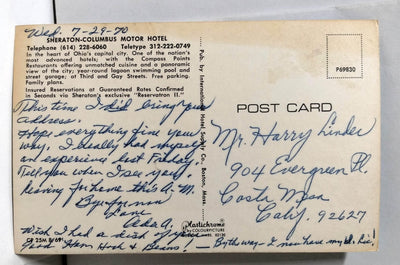 Wed. 7-29-70
SHERATON-COLUMBUS MOTOR HOTEL
Telephone (614) 228-6060 Teletype 312-222-0749
In the heart of Ohio's capital city. One of the nation's
most advanced hotels; with the Compass Points
Restaurants offering unmatched cuisine and a panoramic
view of the city; year-round lagoon swimming pool and
street garage; at Third and Gay Streets. Free parking.
Family plans.
Insured Reservations at Guaranteed Rates Confirmed
in Seconds via Sheraton's exclusive "Reservatron II."
This time I did bring your
address.
Hope everything fine your
way. I really had myself
an experience last Friday.
Tell you when I see you.
Leaving for home this A.M.
Bye for now
Love
Ada A.
Wish I had a dish of your
good Ham Hock & Beans!
By the way - I now have my
DR 25M 8/69
Pub. by International Hotel Supply Co., Boston, Mass.
Plastichrome
BY COLOURPICTURE
P69830
POST CARD
Mr. Harry Linder
904 Evergreen Pl.
Costa Mesa
Calif. 92627